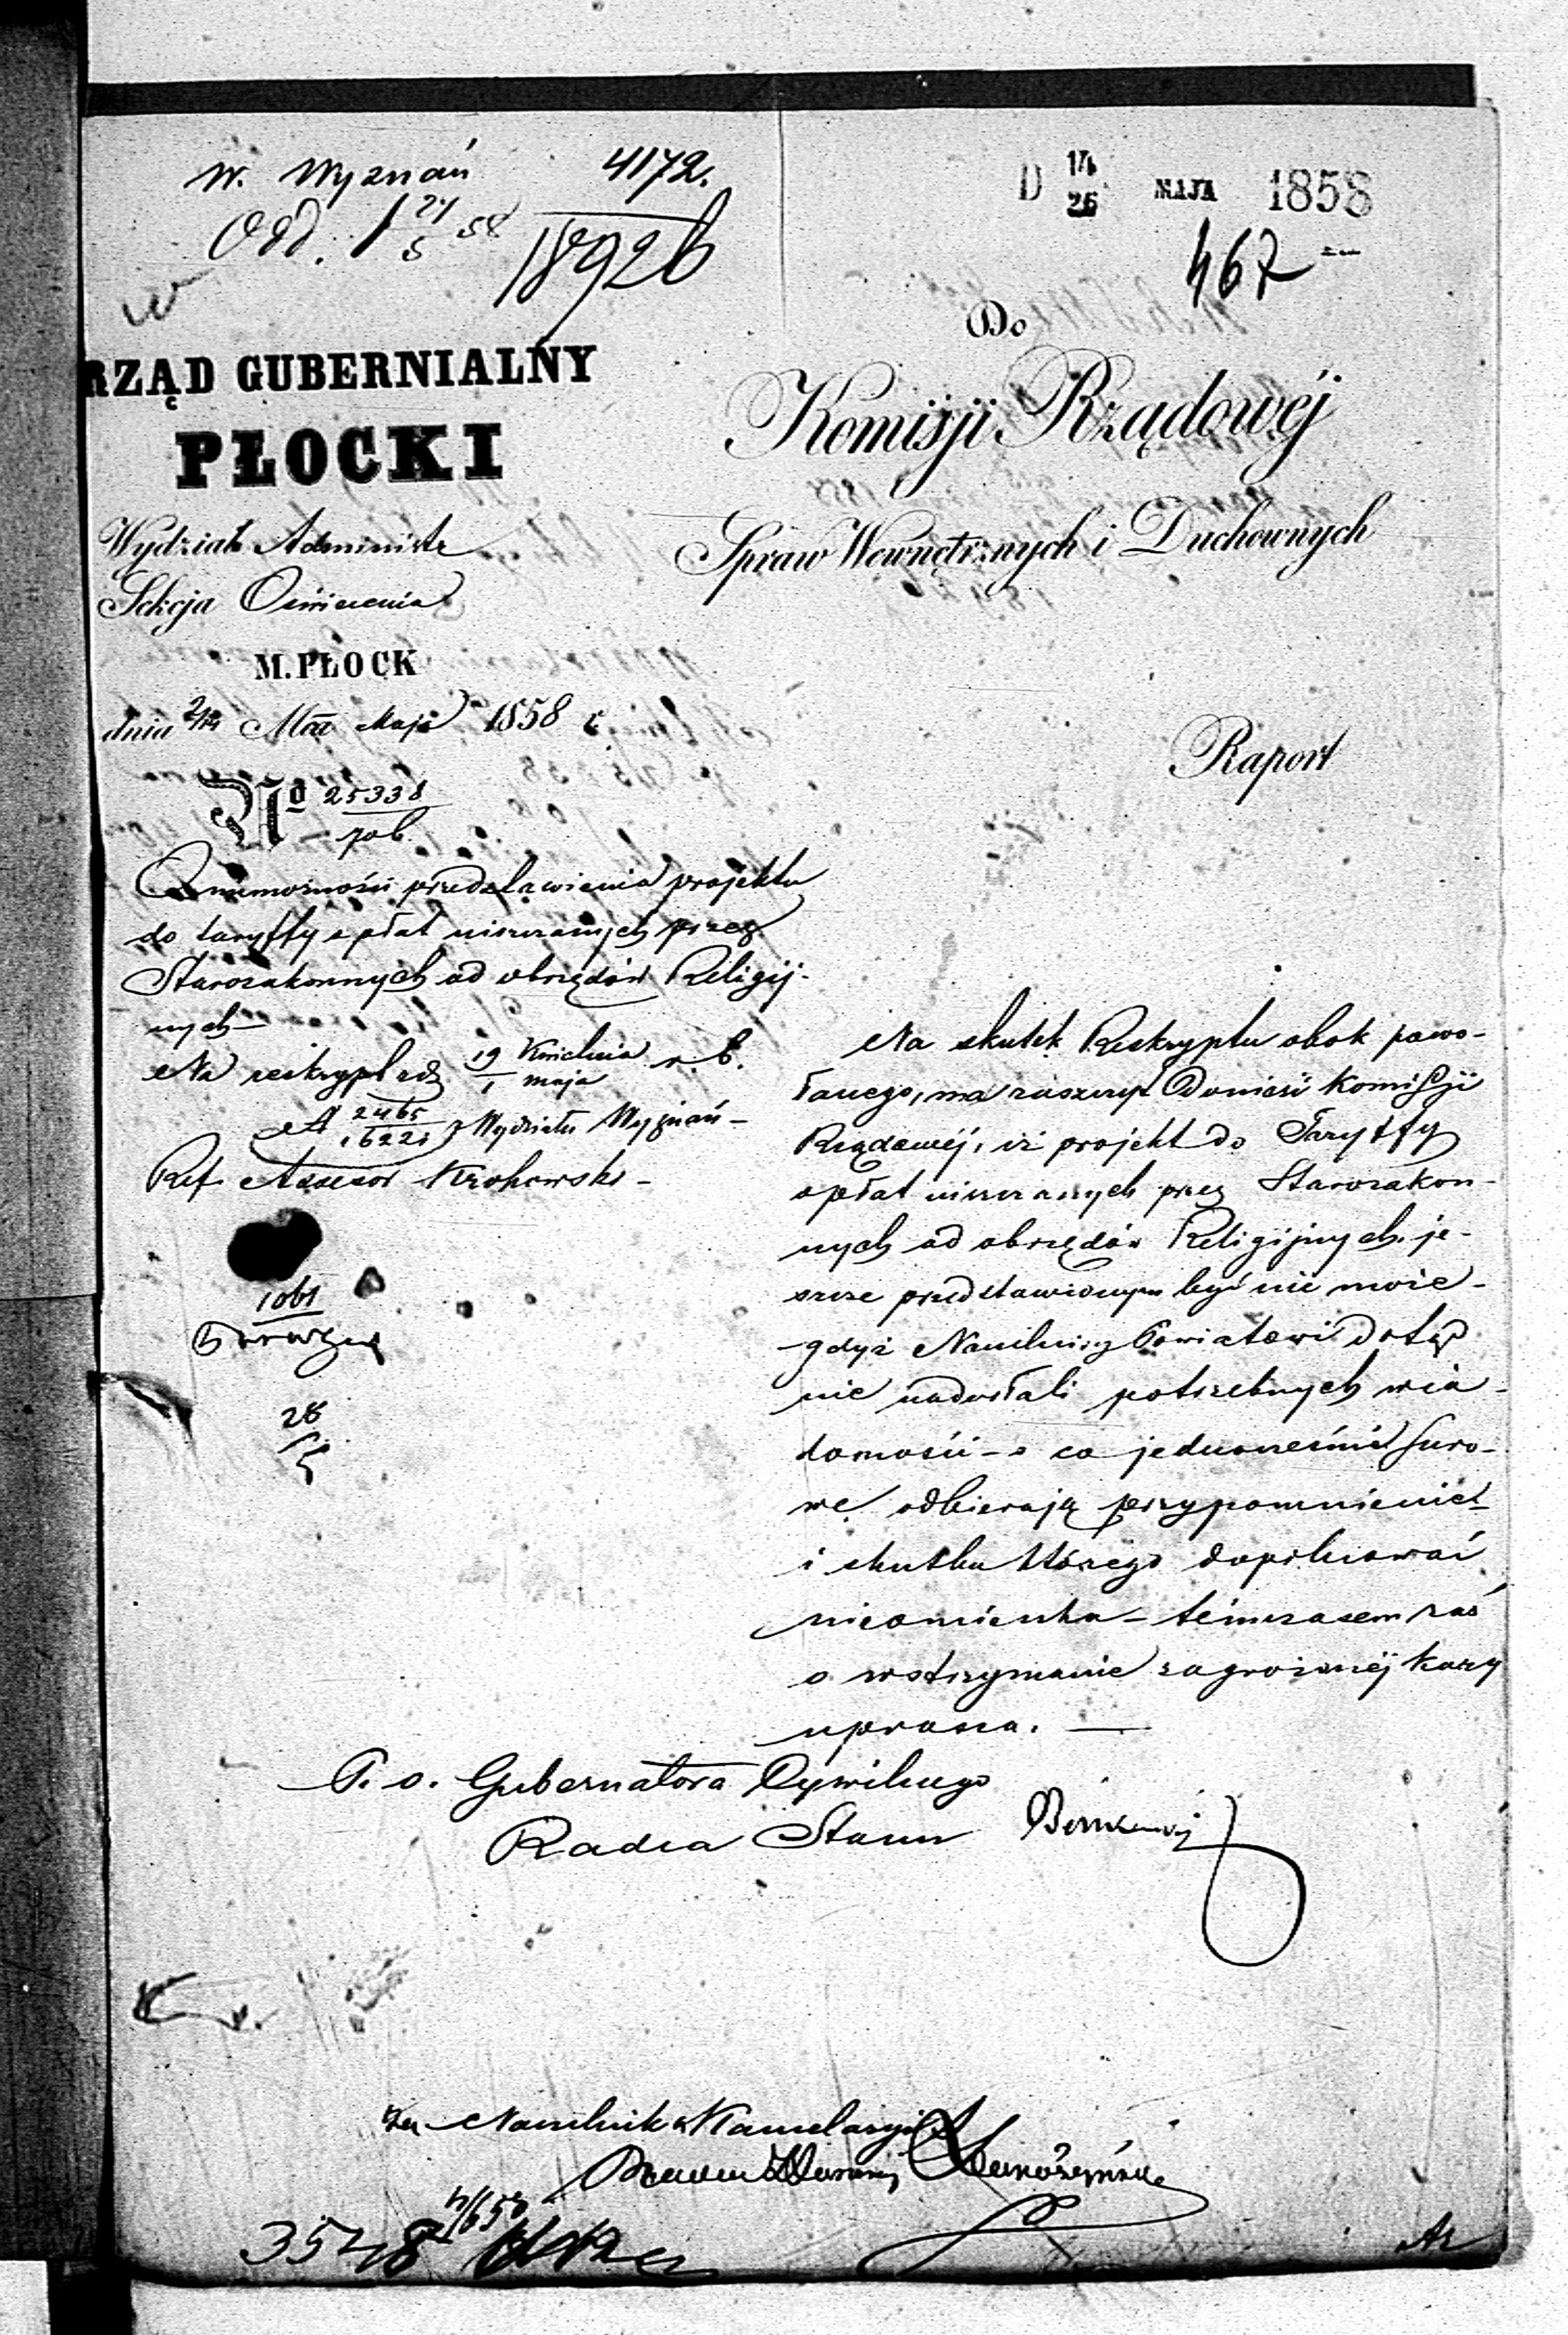 W. Wyznań 4172.
Odd. 1 21/5 58 18926
D 14/26 MAJA 1858
467
RZĄD GUBERNIALNY
PŁOCKI
Wydział Administr
Sekcja Oświecenia
M. PŁOCK
dnia 2/14 Maja 1858 r.
№ 25338
O niemożności przedstawienia projektu
do taryffy opłat uiszczanych przez
Starozakonnych od obrzędów Religij-
nych
Na reskrypt z d. 19 Kwietnia / 1 maja r. b.
№ 2465 / 16221 Wydziału Wyznań -
Ref. Assessor Krohowski -
1061
28
5
Do
Komisji Rządowéj
Spraw Wewnętrznych i Duchownych
Raport
Na skutek Reskryptu obok powo-
łanego, ma zaszczyt Donieść Kommissji
Rządowéj, iż projekt do Taryffy
opłat uiszczanych przez Starozakon-
nych od obrzędów Religijnych je-
szcze przedstawionym być nie może -
gdyż Naczelnicy Powiatowi dotąd
nie nadesłali potrzebnych wia-
domości - o co jednocześnie suro-
we odbierają przypomnienie -
i skutku którego dopilnować
nieomieszka - témczasem zaś
o wstrzymanie zagrożonéj kary
uprasza. —
P. o. Gubernatora Cywilnego
Radca Stanu
za Naczelnika Kancelaryi
3548